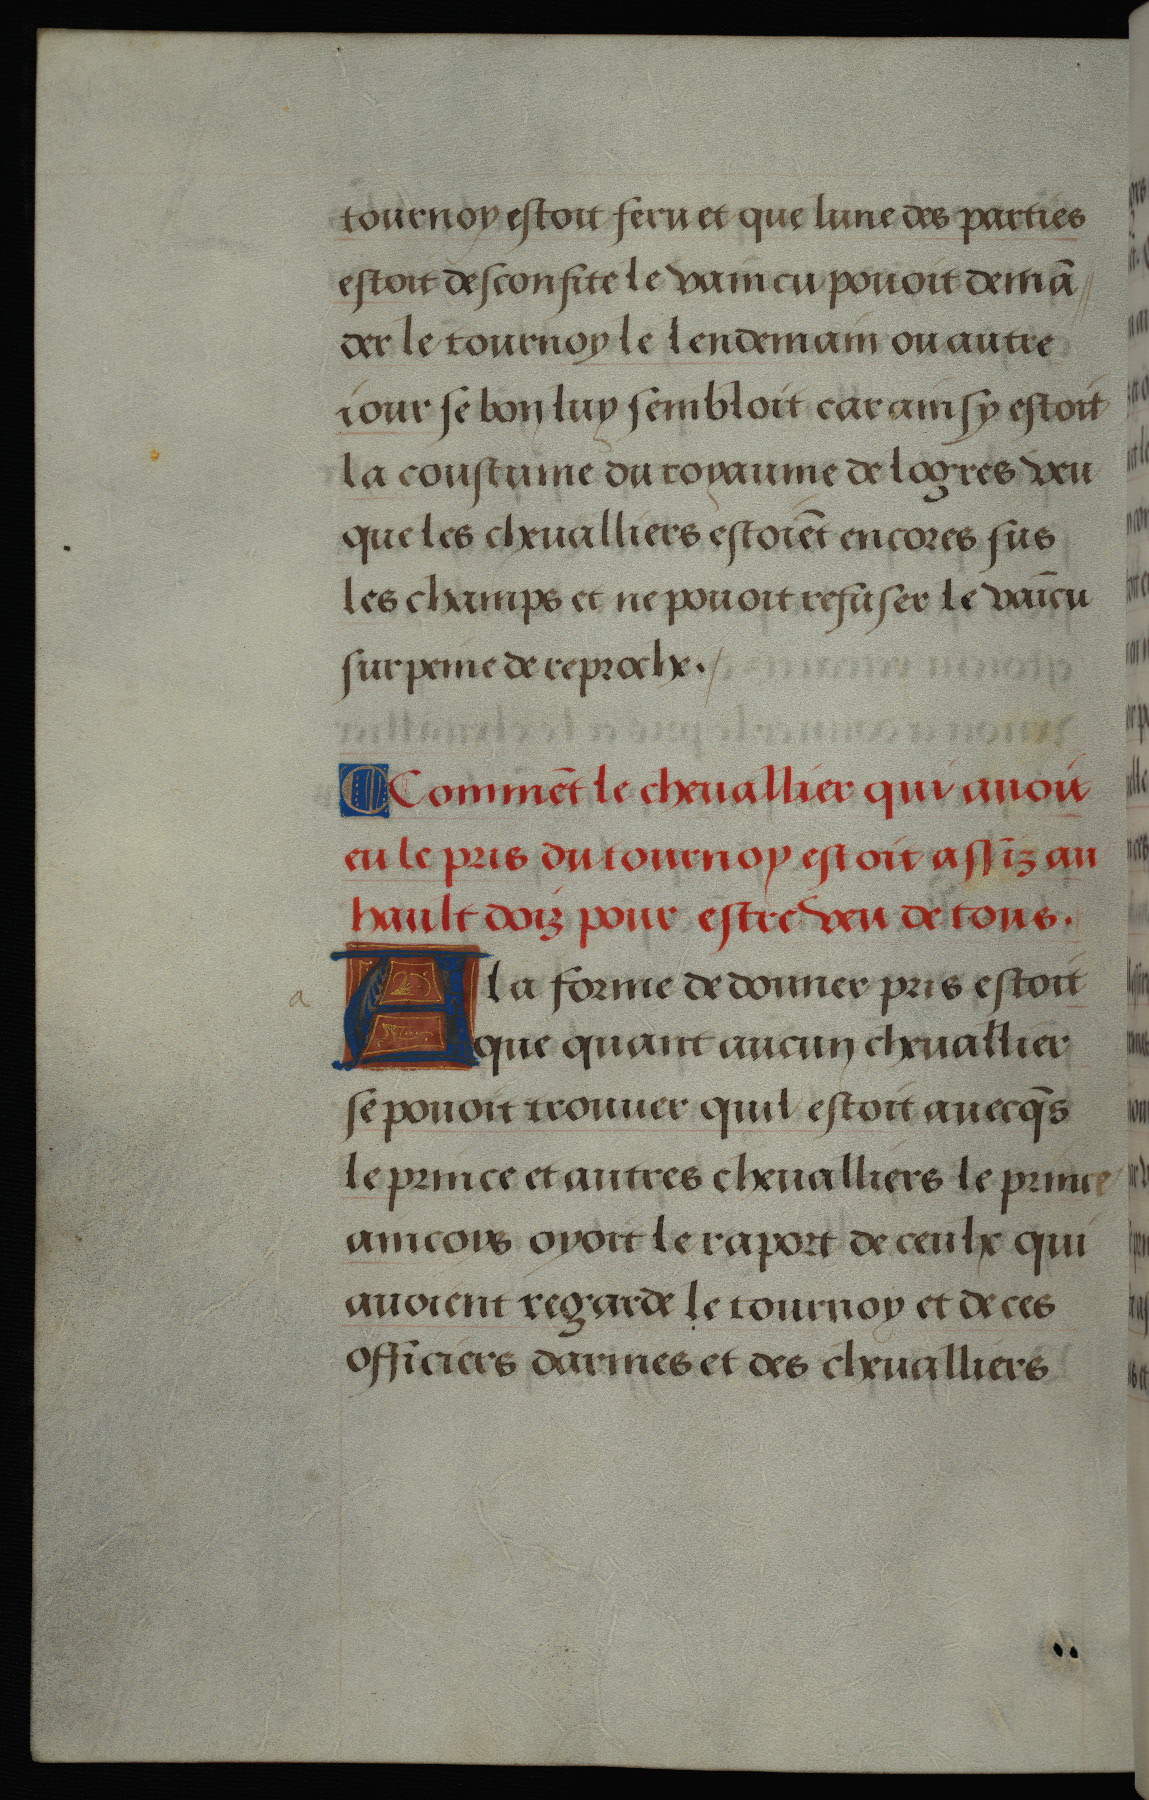 tournoy estoit feru et que lune des parties
estoit desconfite le vaincu pouoit demā//
der le tournoy le lendemain ou autre
iour se bon luy sembloit car ainsy estoit
la coustume du royaume de logres veu
que les cheualliers estoiēt encores sus
les champs et ne pouoit refuser le vaīcu
sur peine de reproche./
Commēt le cheuallier qui auoit
eu le pris du tournoy estoit assiz au
hault doiz pour estre veu de tous.
a
A la forme de donner pris estoit
que quant aucun cheuallier
se pouoit trouuer quil estoit auecq̄s
le prince et autres cheualliers le prince
aincois oyoit le raport de ceulx qui
auoient regarde le tournoy et de ces
officiers darmes et des cheualliers